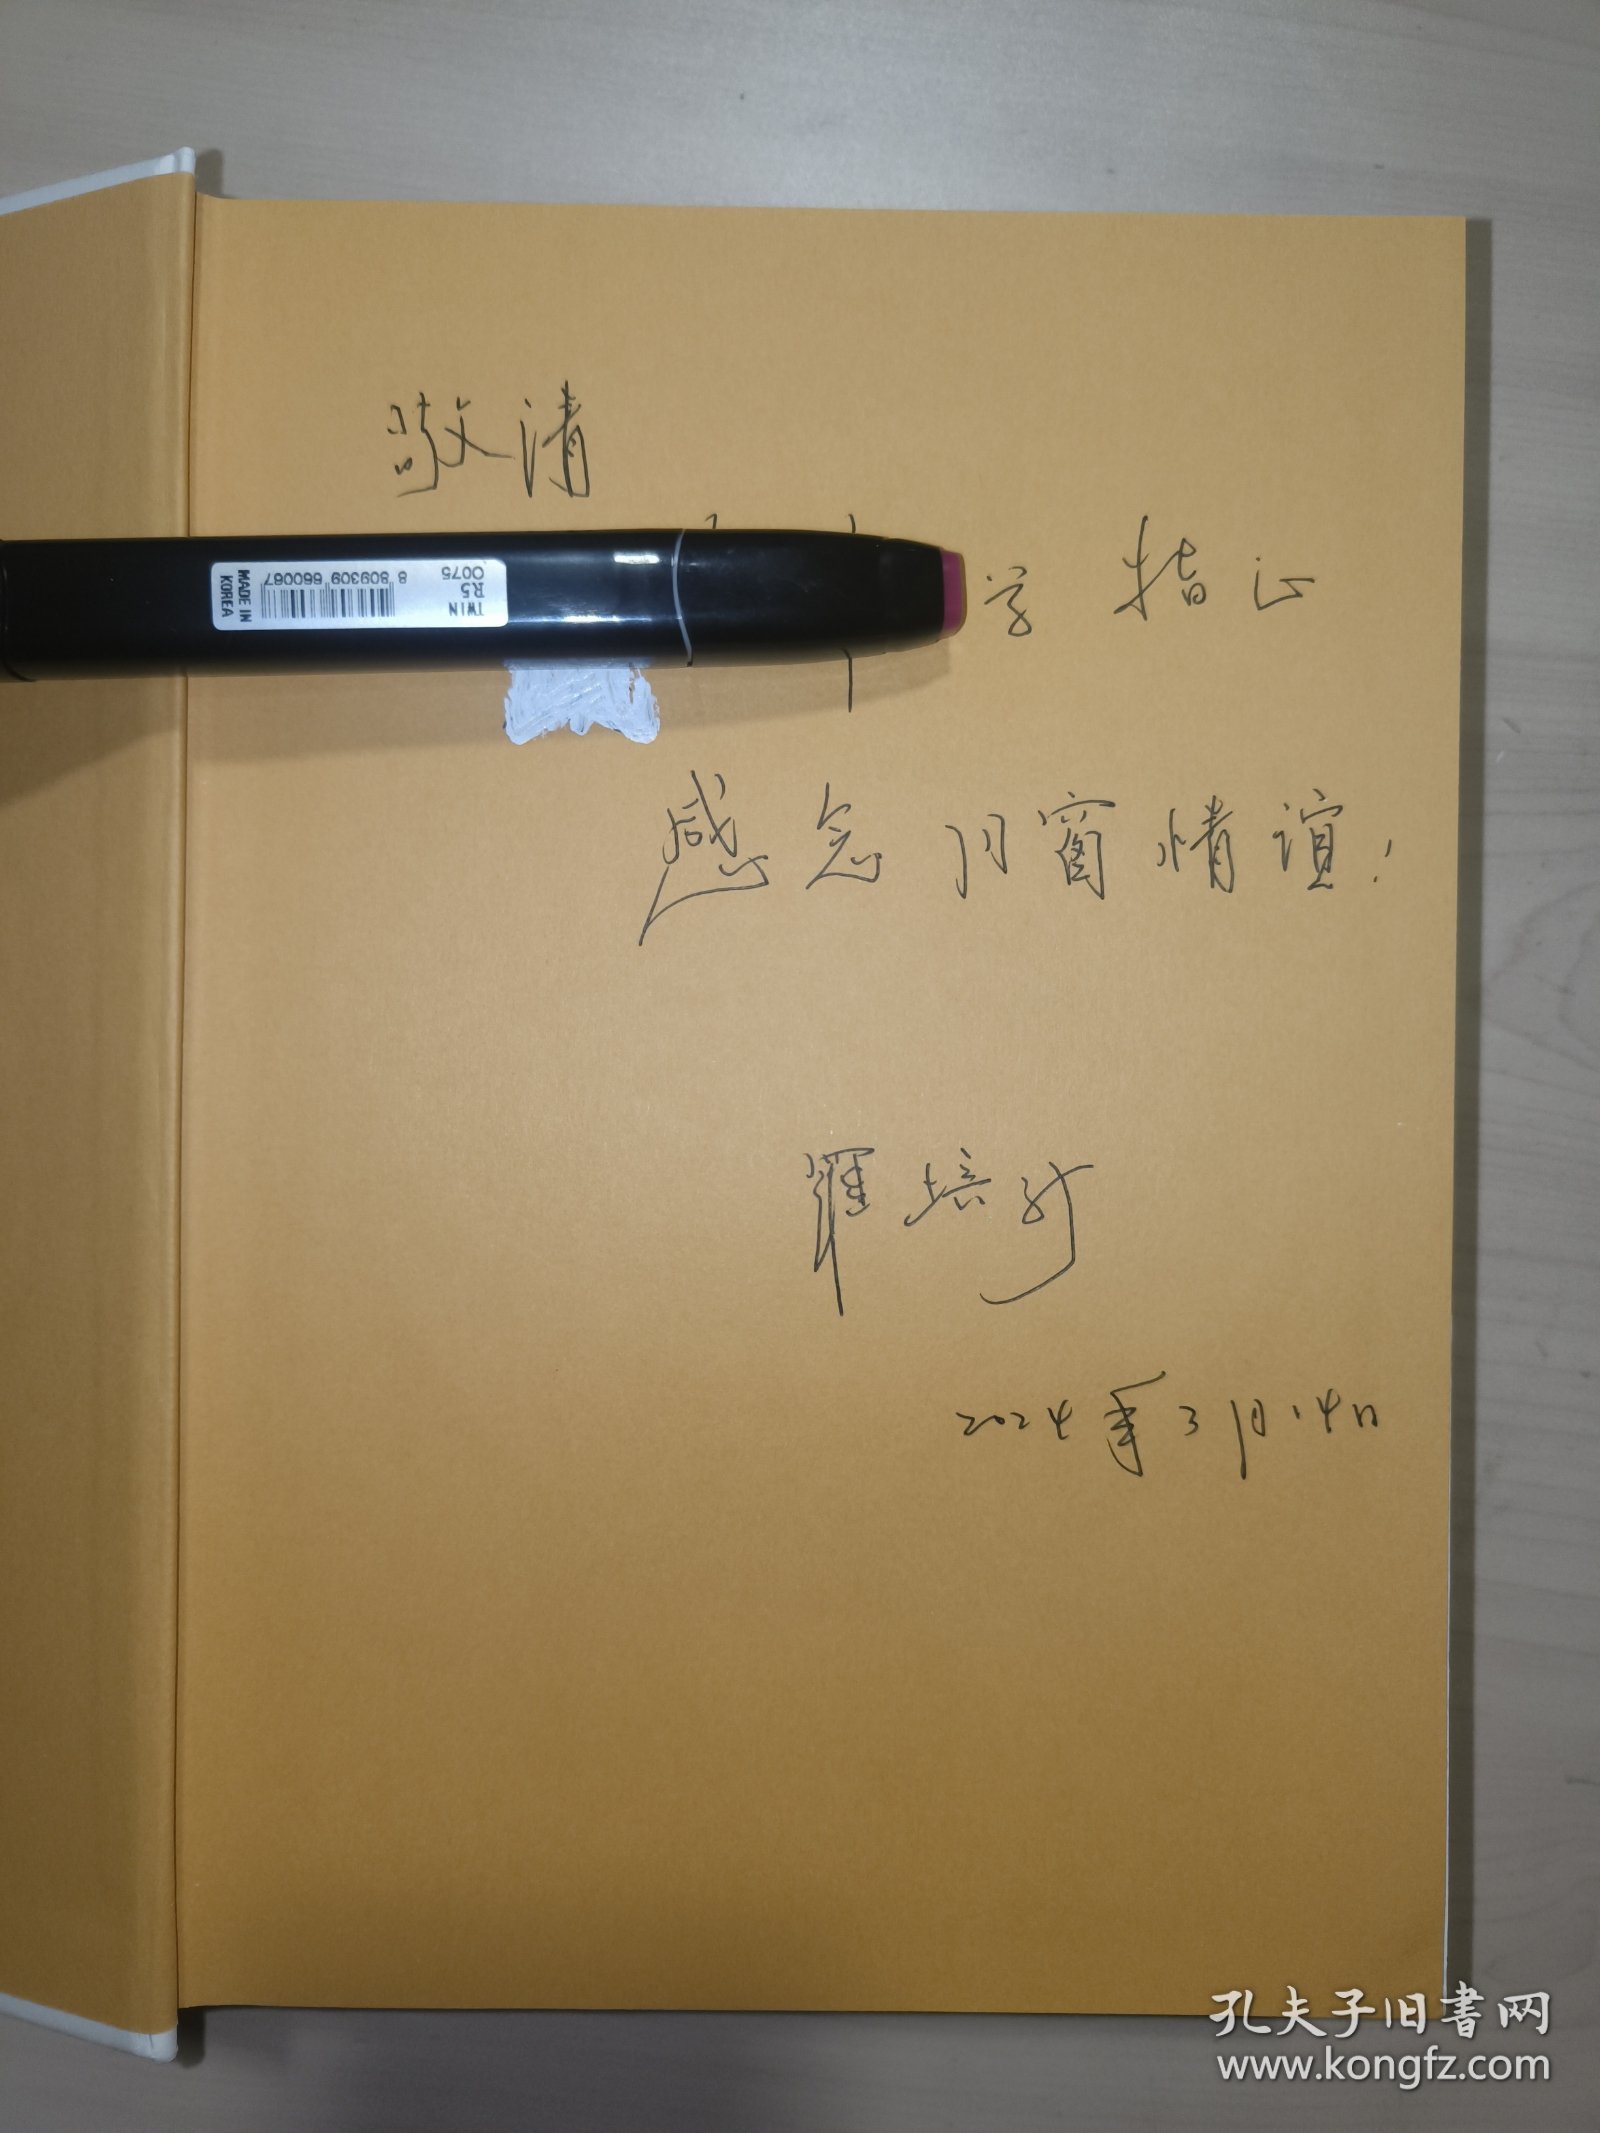 敬请
学 指正
感念同窗情谊！
羅培新
2024年3月14日
TWIN
R5
0075
8 809309 660067
MADE IN
KOREA
孔夫子旧书网
www.kongfz.com